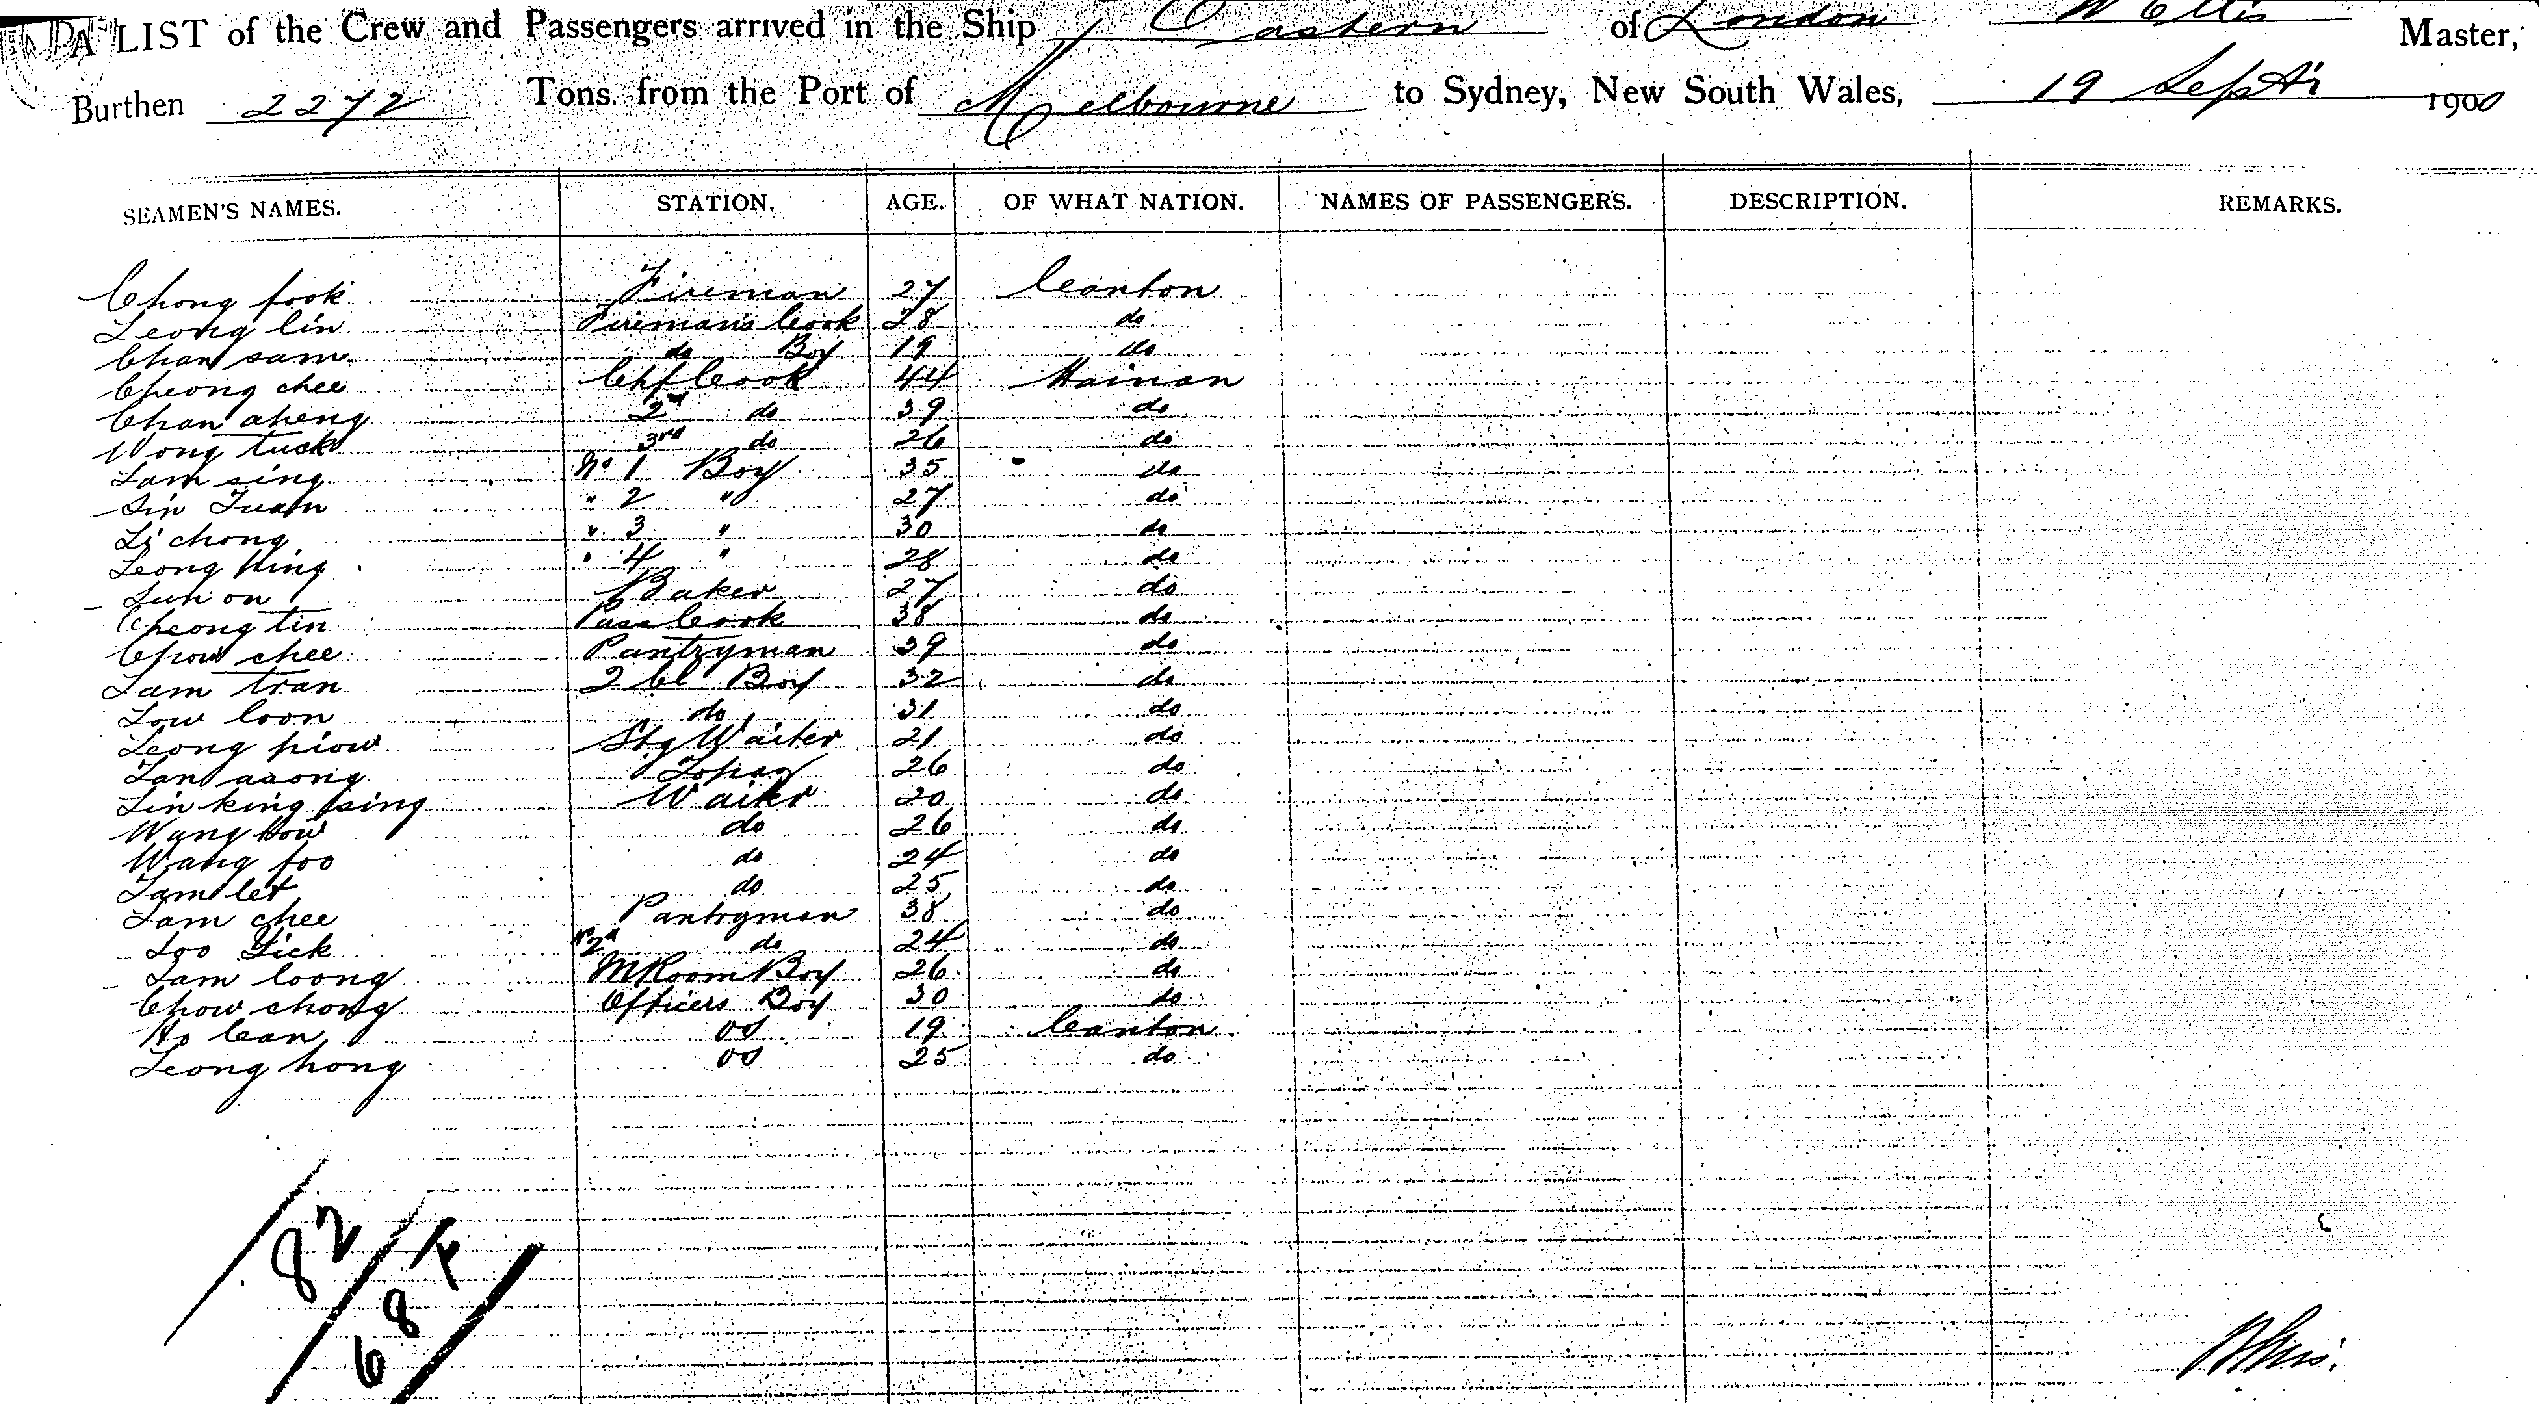 A LIST of the Crew and Passengers arrived in the Ship Eastern of London W Ellis Master,
Burthen 2272 Tons. from the Port of Melbourne to Sydney, New South Wales, 19 Septr 1900
SEAMEN'S NAMES. STATION. AGE. OF WHAT NATION. NAMES OF PASSENGERS. DESCRIPTION. REMARKS.
Chong fook Fireman 27 Canton
Leong lin Firemans Cook 28 do
Chan sam do Boy 19 do
Cheong chee Chf Cook 44 Hainan
Chan aheng 2nd do 39 do
Wong tuck 3rd do 26 do
Lam sing No 1 Boy 35 do
Sin Tuan " 2 " 27 do
Li chong " 3 " 30 do
Leong King " 4 " 28 do
Lun on Baker 27 do
Cheong tin Pass Cook 38 do
Chow chee Pantryman 39 do
Lam tran 2 Cl Boy 32 do
Low loon do 31 do
Leong piow Stg Waiter 21 do
Tan asong Topaz 26 do
Lin king sing Waiter 20 do
Wang how do 26 do
Wang foo do 24 do
Lam let do 25 do
Lam chee Pantryman 38 do
Loo Lick 2nd do 24 do
Lam loong M Room Boy 26 do
Chow chong Officers Boy 30 do
Ho Cean OS 19 Canton
Leong hong OS 25 do
82
68 4